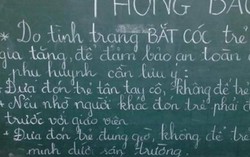 THÔNG BÁO
* Do tình trạng BẮT CÓC trẻ
gia tăng, để đảm bảo an toàn
phụ huynh cần lưu ý:
+ Đưa đón trẻ tận tay cô, không để
+ Nếu nhờ người khác đón trẻ phải
trước với giáo viên
+ Đưa đón trẻ đúng giờ, không để trẻ
mình dưới sân trường.